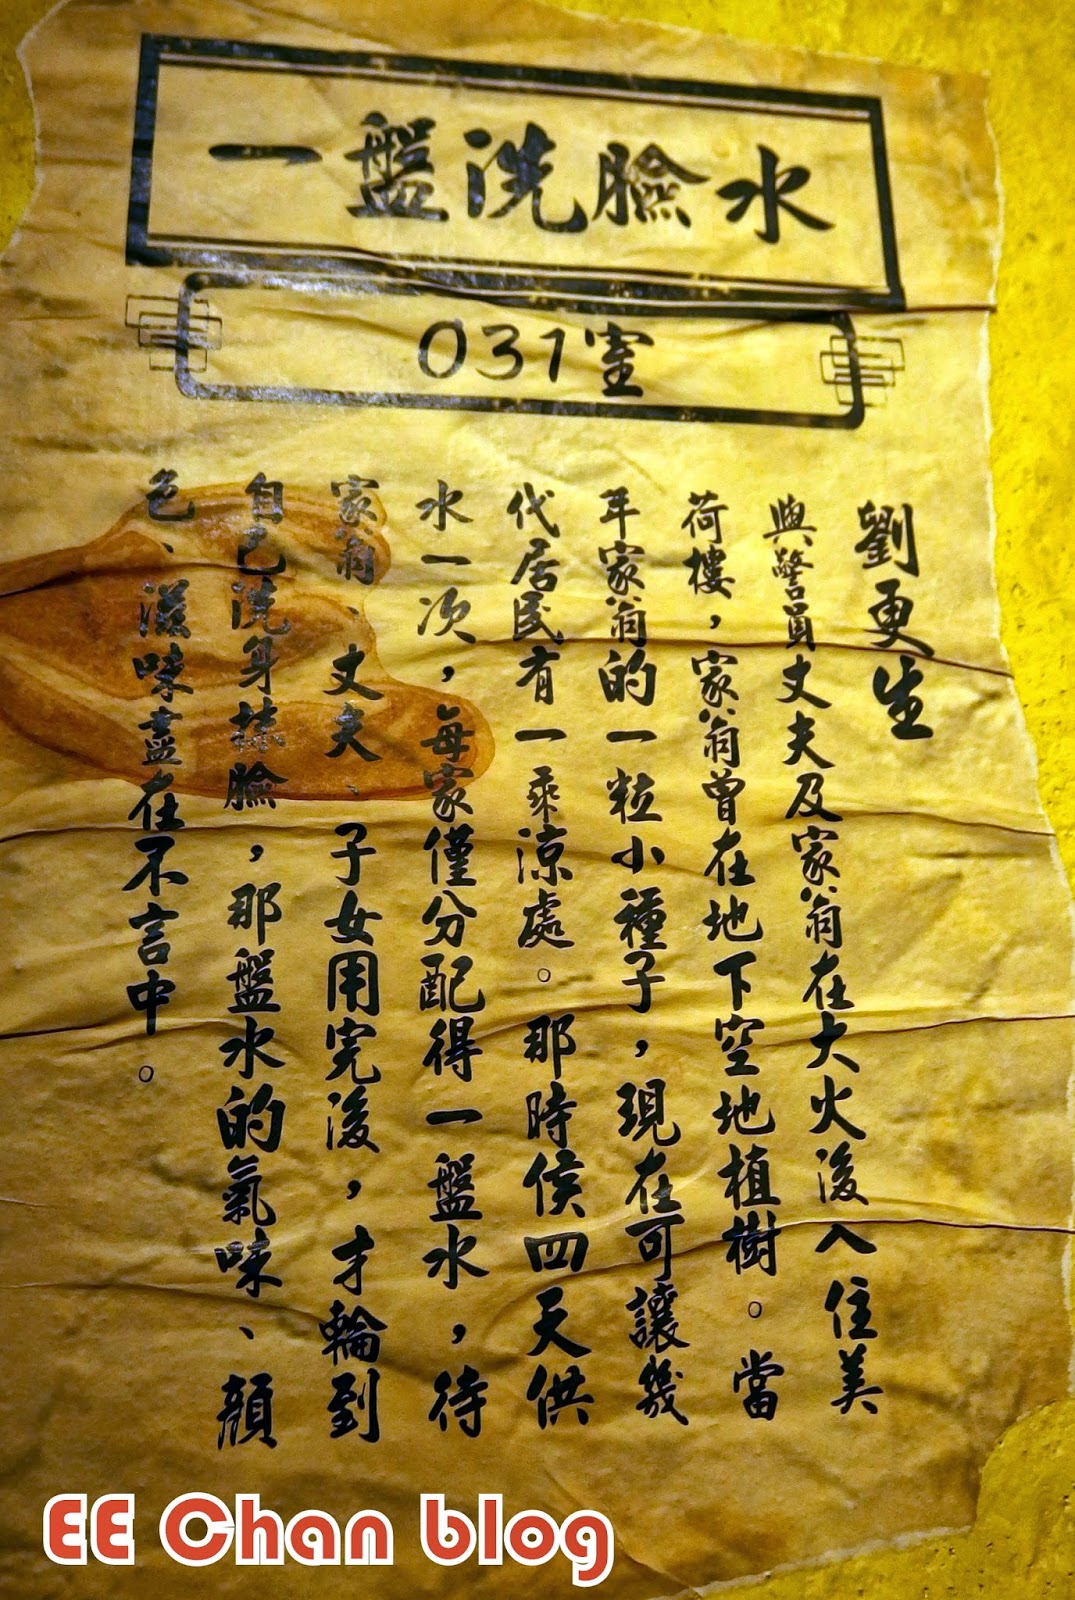 一盤洗臉水
031室
劉更生
與警員丈夫及家翁在大火後入住美
荷樓，家翁曾在地下空地植樹。當
年家翁的一粒小種子，現在可讓幾
代居民有一乘涼處。那時侯四天供
水一次，每家僅分配得一盤水，待
家翁、丈夫、子女用完後，才輪到
自己洗身抹臉，那盤水的氣味、顏
色、滋味盡在不言中。
EE Chan blog